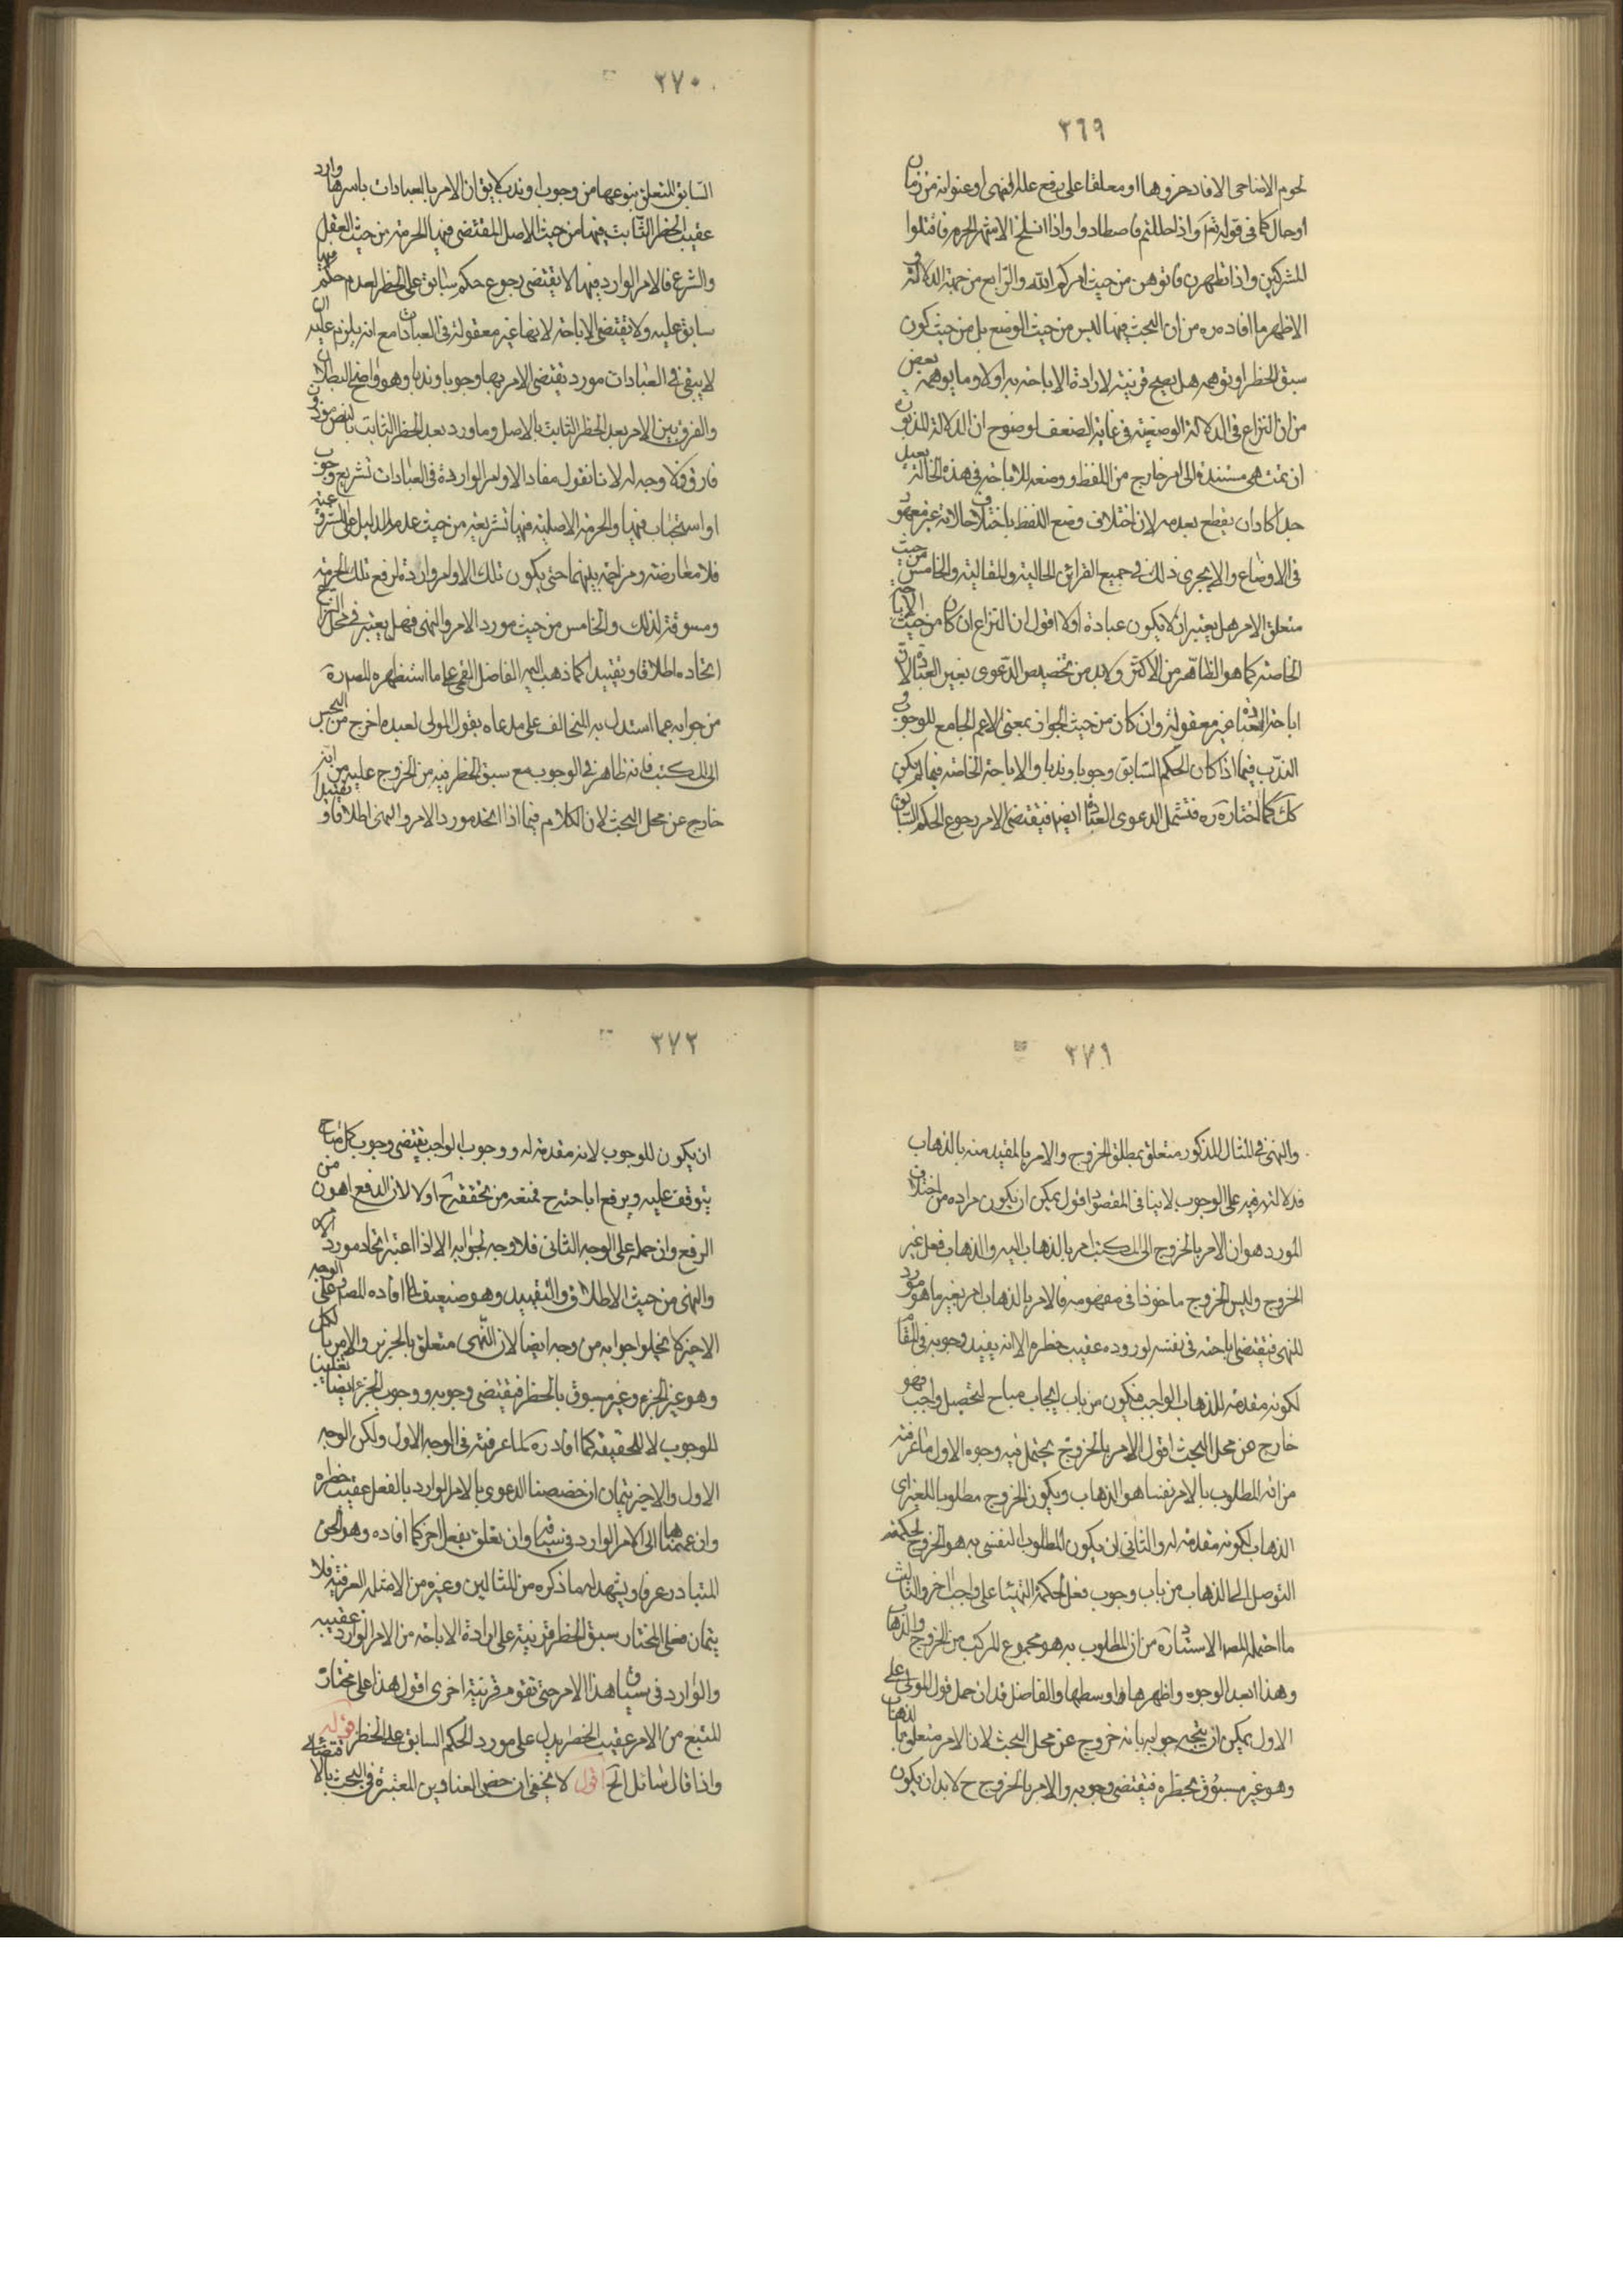 ٣٦٩
لحوم الاضاحى الا فادخروها او معلقا على رفع علة النهى او عنوانه من زمان
او حال كما فى قوله تعم واذا حللتم فاصطادوا واذا انسلخ الاشهر الحرم فاقتلوا
المشركين واذا تطهرن فاتوهن من حيث امركم الله والرابع من جهة الدلالة فى
الاظهر ما افاده ره من ان البحث فيها ليس من حيث الوضع بل من حيث كون
سبق الحظر او توهمه هل يصح قرينة لارادة الاباحة به اولا وما يوهمه بعض
من ان النزاع فى الدلالة الوضعية فى غاية الضعف لوضوح ان الدلالة المذبورة
ان تمت هى مستندة الى امر خارج من اللفظ ووضعه للاباحة فى هذه الحالة بعيد
جدا كاد ان يقطع بعدمه لان اختلاف وضع اللفظ باختلاف حالاته غير معهود
فى الاوضاع والا يجرى ذلك فى جميع القرائن الحالية والمقالية والخامس من حيث
متعلق الامر هل يعتبر ان لا يكون عبادة اولا اقول ان النزاع ان كان من حيث الاباحة
الخاصة كما هو الظاهر من الاكثر ولابد من تخصيص الدعوى بغير العبادة لان
اباحة العبادة غير معقولة وان كان من حيث الجواز بمعنى الاعم الجامع للوجوب و
الندب فيما اذا كان الحكم السابق وجوبا وندبا والاباحة الخاصة فيما لم يكن
كك كما اختاره ره فتشمل الدعوى العبادة ايضم فيقتضى الامر رجوع الحكم السابق
٣٧٠
السابق المتعلق بنوعها من وجوب او ندب لا يق ان الامر بالعبادات باسرها وارد
عقيب الحظر الثابت فيها من حيث الاصل المقتضى فيها الحرمة من حيث العقل
والشرع فالامر الوارد فيها لا يقتضى رجوع حكم سابق على الحظر لعدم حكم فيها
سابق عليه ولا يقتضى الاباحة لانها غير معقولة فى العبادات مع انه يلزم عليه ان
لا يبقى فى العبادات مورد يقتضى الامر بها وجوبا وندبا وهو واضح البطلان
والفرق بين الامر بعد الحظر الثابت بالاصل وما ورد بعد الحظر الثابت بالنص
فارق ولا وجه له لانا نقول مفاد الاوامر الواردة فى العبادات تشريع وجوب
او استحباب فيها والحرمة الاصلية فيها تشريعية من حيث عدم الدليل على
فلا معارضة ومزاحمة بينهما حتى يكون تلك الاوامر واردة لرفع تلك الحرمة
ومسوقة لذلك والخامس من حيث مورد الامر والنهى فهل يعتبر فى محل النزاع
اتحاده اطلاقا وتقييدا كما ذهب اليه الفاضل القمى على ما استظهره المصره
من جوابه عما استدل به المخالف على مدعاه بقول المولى لعبده اخرج من الحبس
الى المكتب فانه ظاهر فى الوجوب مع سبق الحظر فيه من الخروج عليه من انه
خارج عن محل البحث لان الكلام فيما اذا اتحد مورد الامر والنهى اطلاقا وتقييدا
٣٧١
والنهى فى المثال المذكور متعلق بمطلق الخروج والامر بالمقيد منه بالذهاب
فدلالته فيه على الوجوب لا ينافى المقصود اقول يمكن ان يكون مراده من اختلاف
المورد هو ان الامر بالخروج الى المكتب امر بالذهاب اليه والذهاب فعل غير
الخروج وليس الخروج ماخوذا فى مفهومه فالامر بالذهاب امر بغير ما هو مورد
للنهى فيقتضى اباحته فى نفسه لوروده عقيب حظره الا انه يفيد وجوبه فى المقام
لكونه مقدمة للذهاب الواجب فيكون من باب ايجاب مباح لتحصيل واجب فهو
خارج عن محل البحث اقول الامر بالخروج يحتمل فيه وجوه الاول ما عرفته
من انه المطلوب بالامر نفسا هو الذهاب ويكون الخروج مطلوبا للغير اى
الذهاب لكونه مقدمة له والثانى ان يكون المطلوب لنفسى به هو الخروج لحكمة
التوصل الى الذهاب من باب وجوب فعل لحكمة التهيئا على واجب اخر والثالث
ما احتمله المصم الاستاد ره من ان المطلوب به هو مجموع المركب من الخروج والذهاب
وهذا ابعد الوجوه واظهرها اوسطها والفاضل قد ان حمل قول المولى على
الاول يمكن ان يتجه جوابه بانه خروج عن محل البحث لان الامر متعلق بالذهاب
وهو غير مسبوق بحظره فيقتضى وجوبه والامر بالخروج ح لابد ان يكون
٣٧٢
ان يكون للوجوب لانه مقدمة له ووجوب الواجب يقتضى وجوب كل مباح
يتوقف عليه ويرفع اباحته ح فمنعه من تحققه ح اولا لان الدفع اهون من
الرفع وان حمله على الوجه الثانى فلا وجه لجوابه الا اذا اعتبر اتحاد مورد الامر
والنهى من حيث الاطلاق والتقييد وهو ضعيف لما افاده المصم وعلى الوجه
الاخير لا يخلوا جوابه من وجه ايضا لان النهى متعلق بالجزء والامر بالكل
وهو غير الجزء وغير مسبوق بالحظر فيقتضى وجوبه ووجوب الجزء ايضا
للوجوب لا للحقيقه كما افاد ره لما عرفته فى الوجه الاول ولكن الوجه
الاول والاخير يتمان ان خصصنا الدعوى بالامر الوارد بالفعل عقيب حظره
وان عممناها الى الامر الوارد فى سياقه وان تعلق بفعل اخر كما افاده وهو الحق
المتبادر عرفا ويشهد له ما ذكره من المثالين وغيره من الامثلة العرفية فلا
يتمان فعلى المختار سبق الحظر قرينة على ارادة الاباحة من الامر الوارد عقيبه
والوارد فى سياق هذا الامر حتى تقوم قرينة اخرى اقول هذا على مختار
المتبع من الامر عقيب الحضر يدل على مورد الحكم السابق على الحظر قوله
واذا قال سائل الخ اقول لا يخفى ان حض العناوين المعتبرة فى البحث